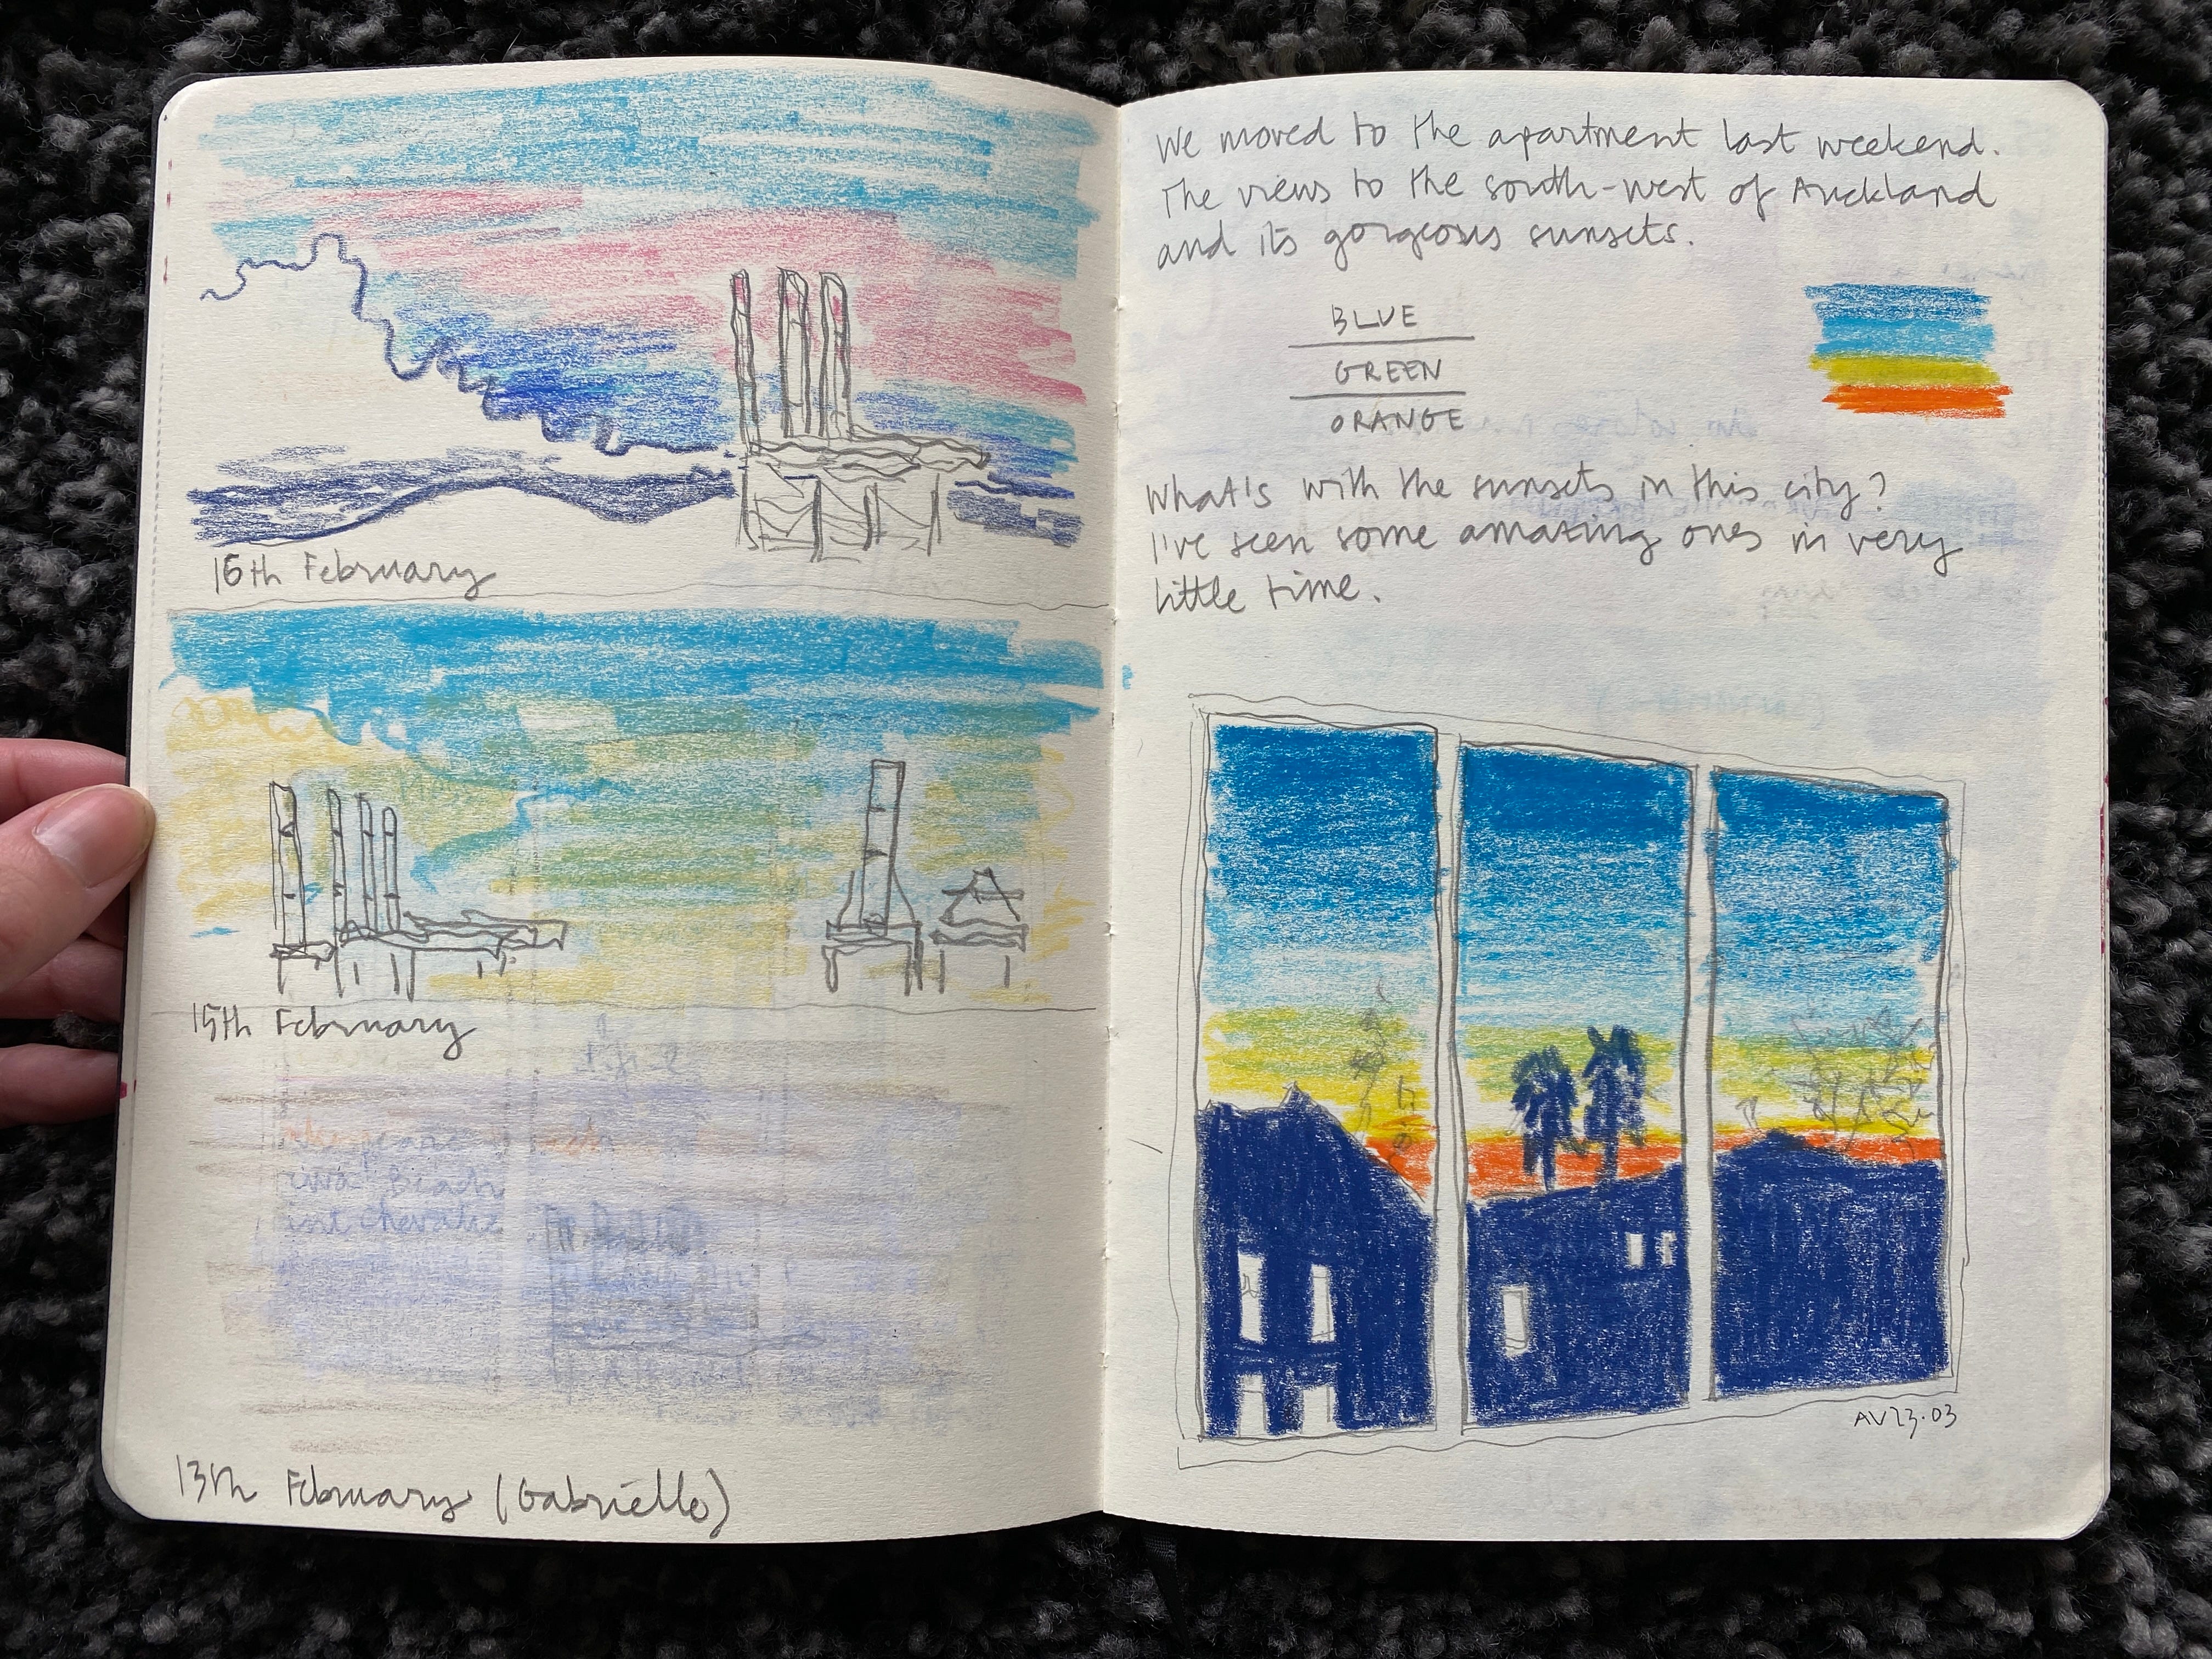 16th February
15th February
13th February (Gabriello)
We moved to the apartment last weekend.
The views to the south-west of Auckland
and its gorgeous sunsets.
BLUE
GREEN
ORANGE
What's with the sunsets in this city?
I've seen some amazing ones in very
little time.
AV23.03